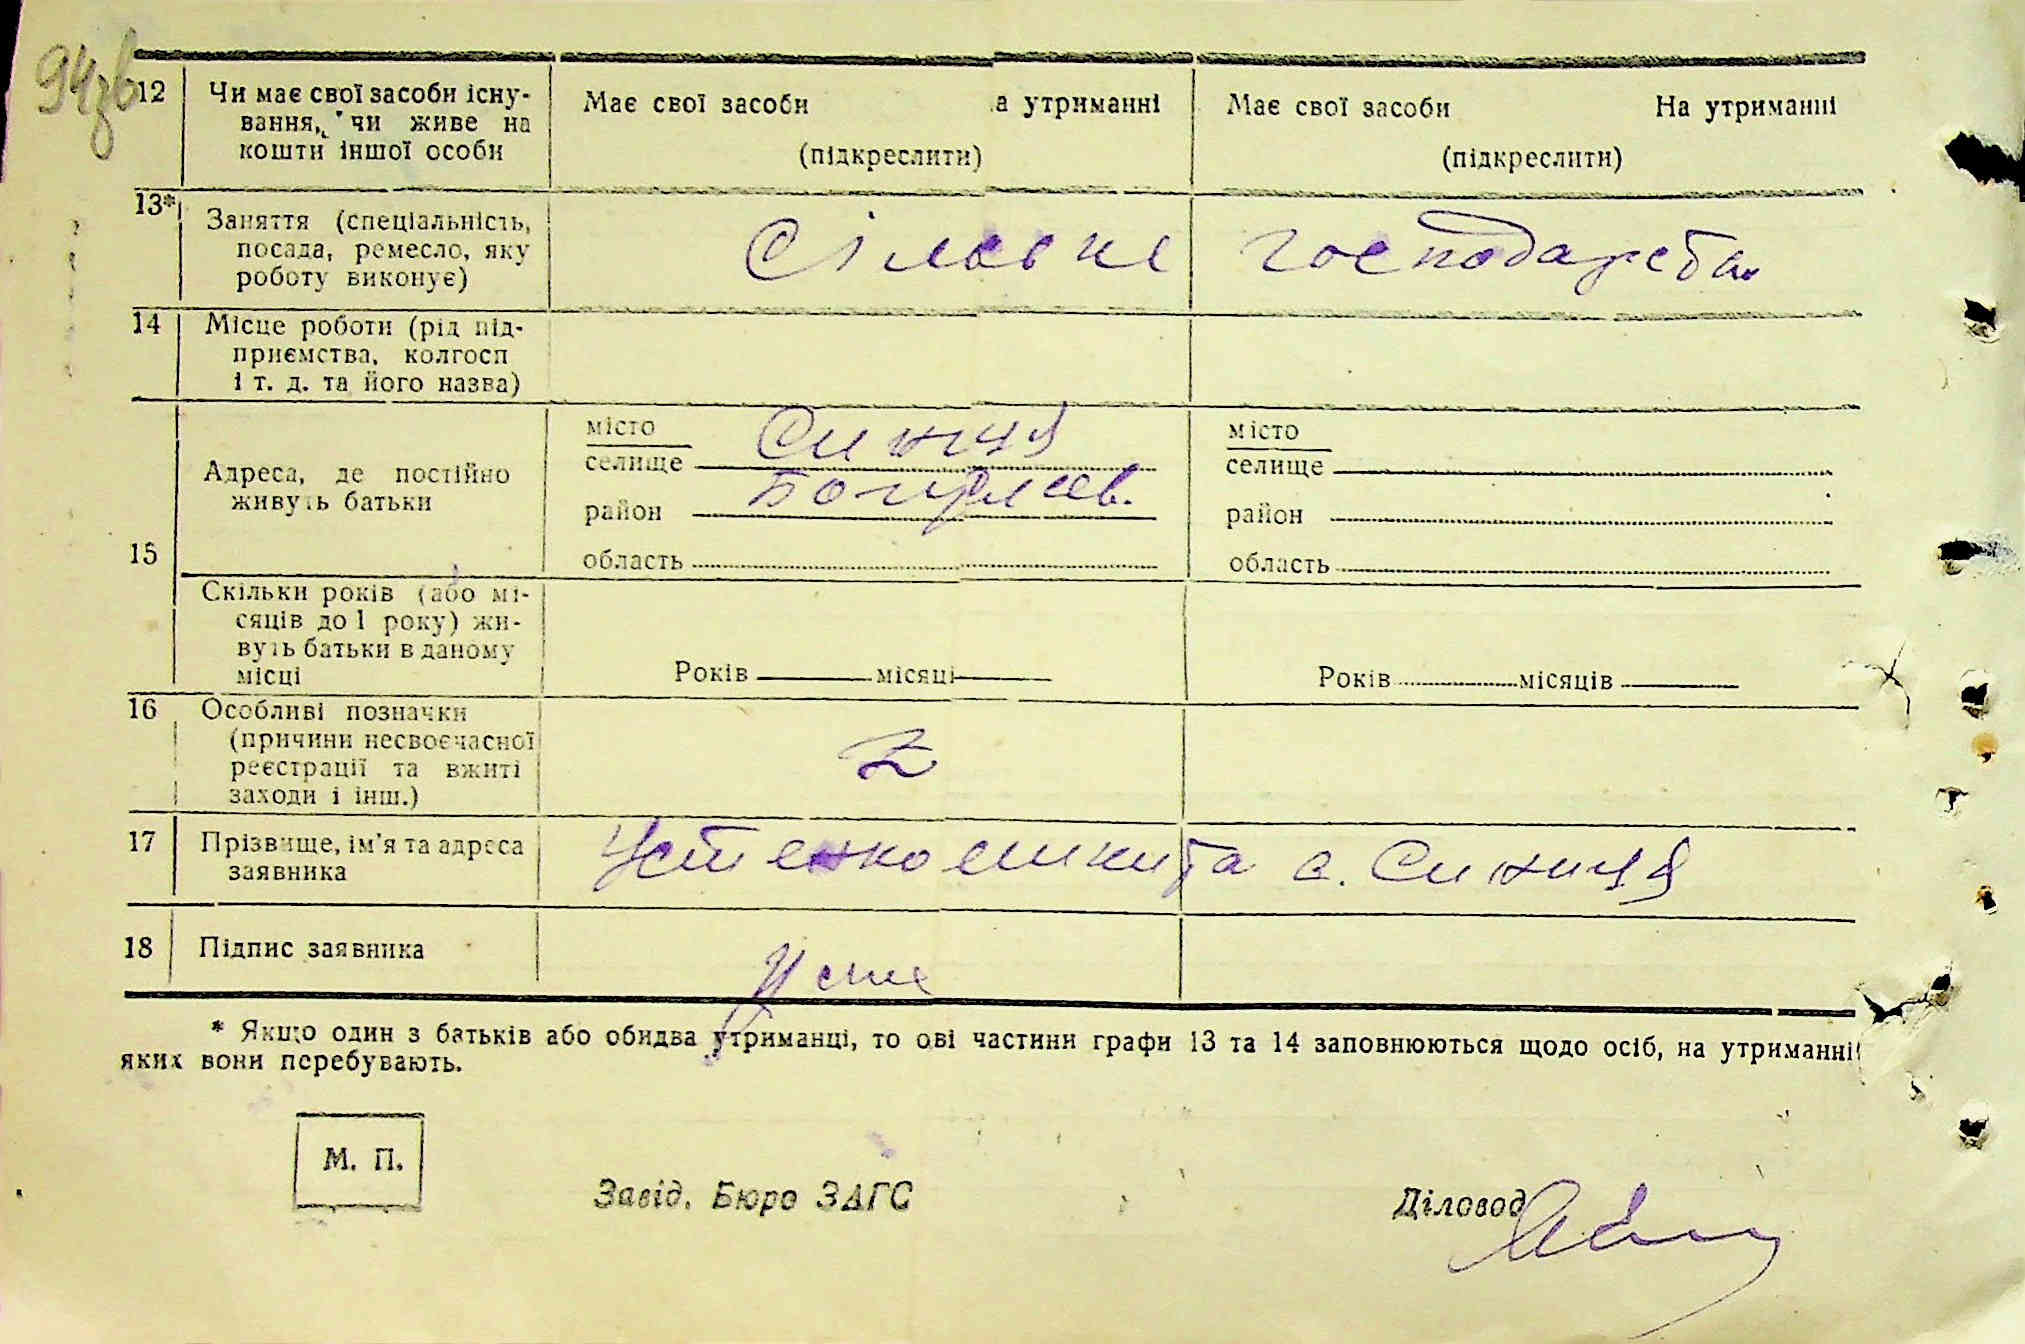 94зв
12 Чи має свої засоби існу- Має свої засоби а утриманні Має свої засоби На утриманні
вання, чи живе на
кошти іншої особи (підкреслити) (підкреслити)
13* Заняття (спеціальність, Сільське господарство
посада, ремесло, яку
роботу виконує)
14 Місце роботи (рід під-
приємства, колгосп
і т. д. та його назва)
15 Адреса, де постійно
живуть батьки
місто Синиця місто
селище селище
район район
область область
Скільки років (або мі-
сяців до 1 року) жи-
вуть батьки в даному
місці Років місяці Років місяців
16 Особливі позначки
(причини несвоєчасної
реєстрації та вжиті
заходи і інш.)
17 Прізвище, ім'я та адреса Устенко Микита с. Синиця
заявника
18 Підпис заявника Усте
* Якщо один з батьків або обидва утриманці, то ові частини графи 13 та 14 заповнюються щодо осіб, на утриманні
яких вони перебувають.
М. П.
Завід. Бюро ЗАГС Діловод